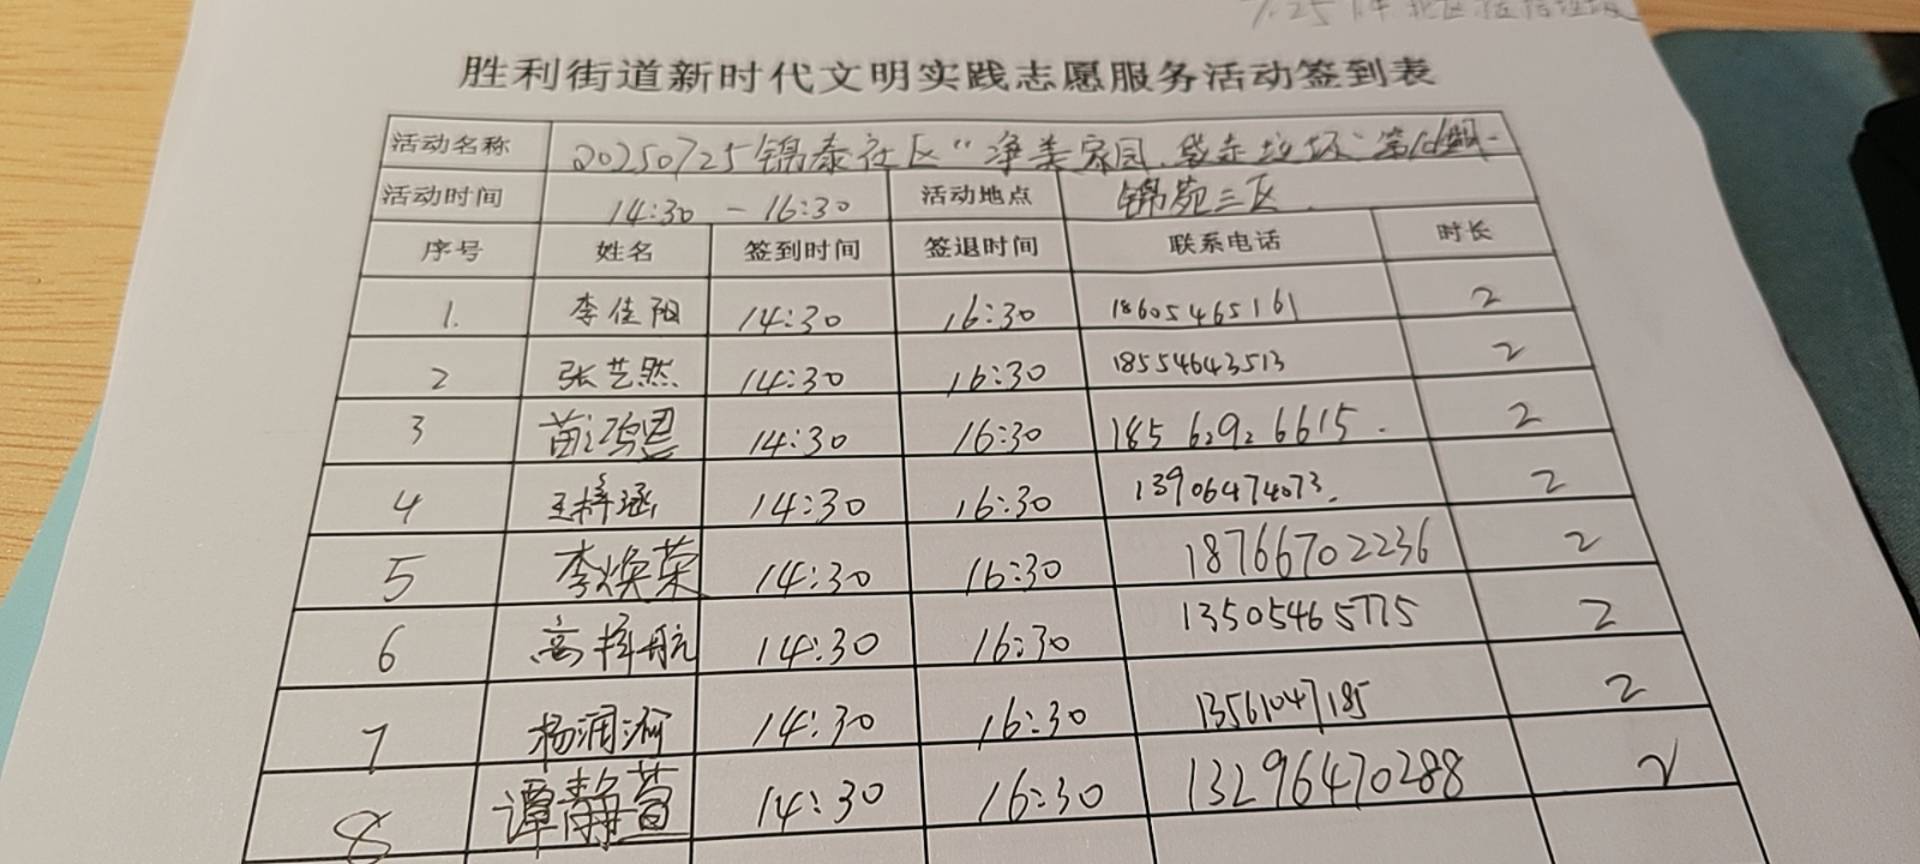 7.25
胜利街道新时代文明实践志愿服务活动签到表
活动名称 20250725锦泰社区“净美家园、袋走垃圾”第
活动时间 14:30 - 16:30 活动地点 锦苑三区
序号 姓名 签到时间 签退时间 联系电话 时长
1. 李佳阳 14:30 16:30 18605465161 2
2 张艺然 14:30 16:30 18554643513 2
3 苗 14:30 16:30 18562926615. 2
4 王梓涵 14:30 16:30 13906474073. 2
5 李焕荣 14:30 16:30 18766702236 2
6 高梓航 14:30 16:30 13505465775 2
7 杨润河 14:30 16:30 13561047185 2
8 谭静萱 14:30 16:30 13296470288 2